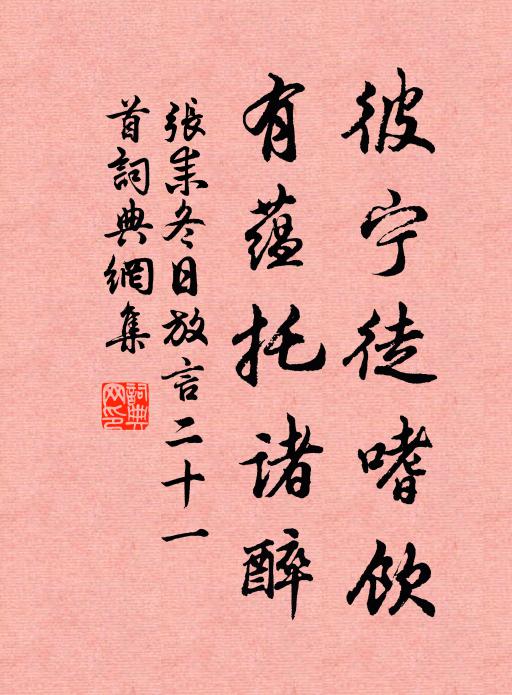 彼宁徒嗜饮
有蕴托诸醉
張耒冬日放言二十一
首詞典網集
詞典
网印